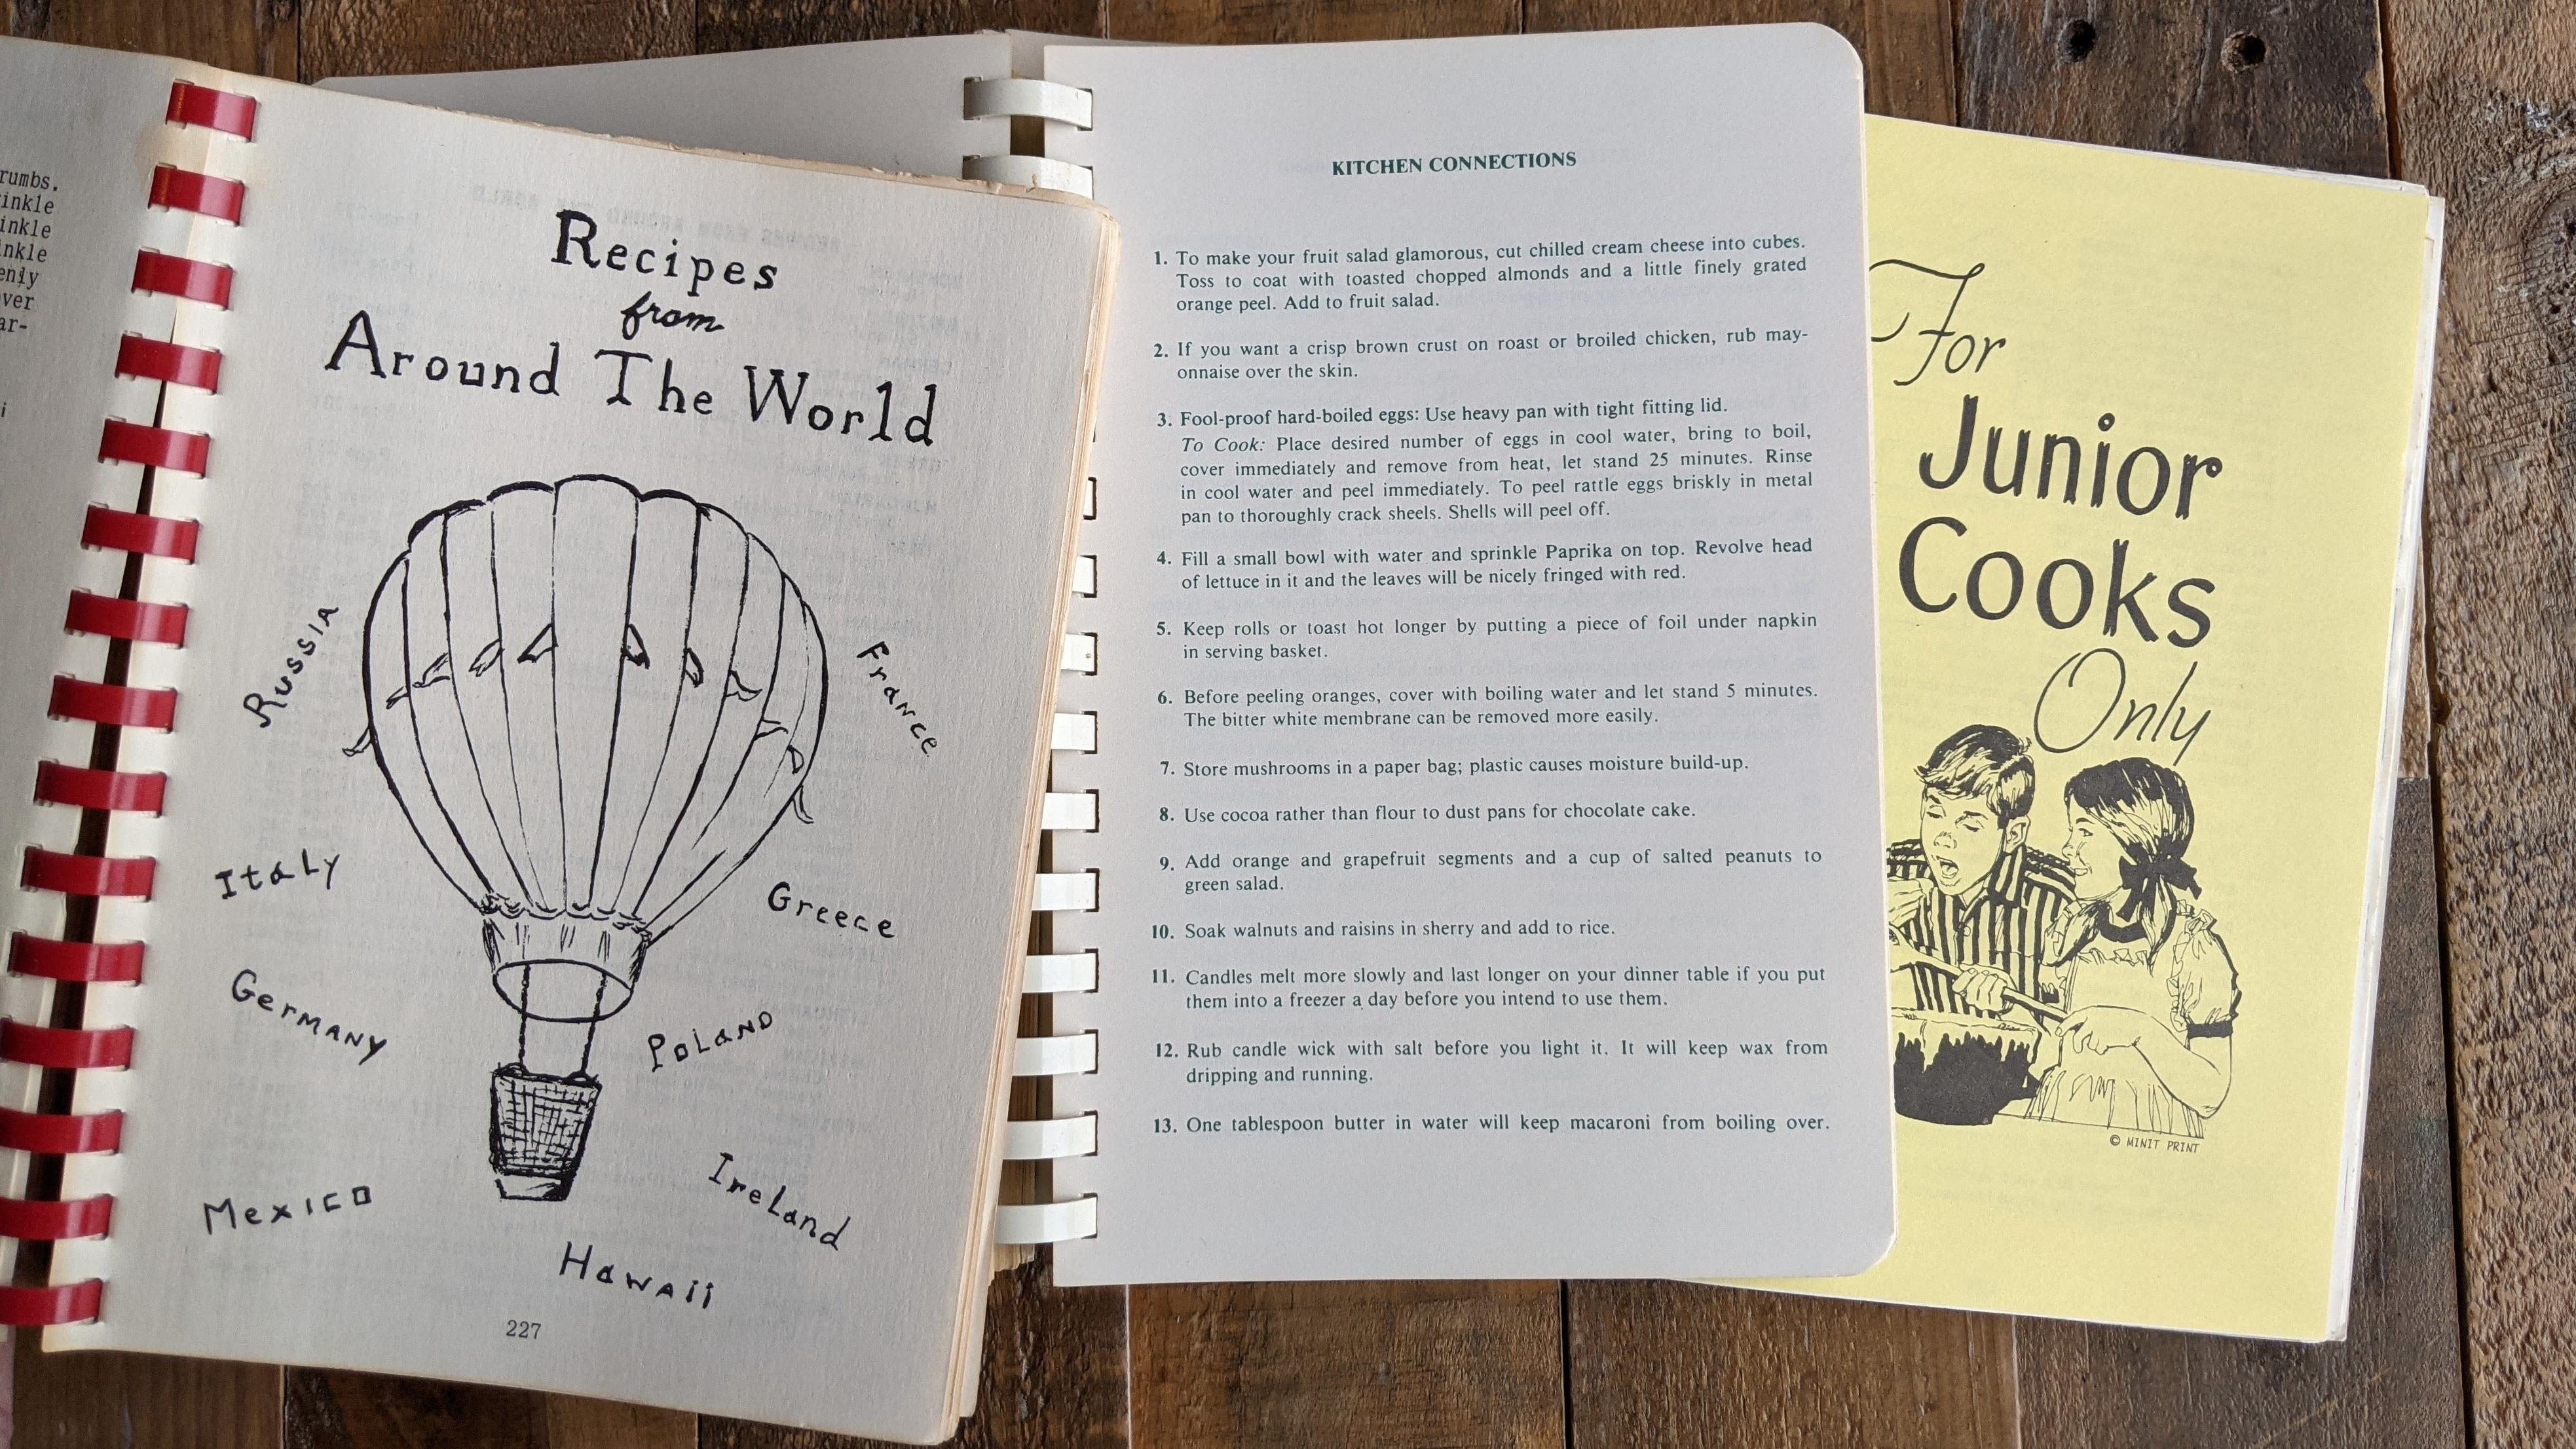 rumbs.
inkle
inkle
inkle
enly
ver
ar-
i
Recipes
from
Around The World
Russia
France
Italy
Greece
Germany
Poland
Mexico
Ireland
Hawaii
227
KITCHEN CONNECTIONS
1. To make your fruit salad glamorous, cut chilled cream cheese into cubes.
Toss to coat with toasted chopped almonds and a little finely grated
orange peel. Add to fruit salad.
2. If you want a crisp brown crust on roast or broiled chicken, rub may-
onnaise over the skin.
3. Fool-proof hard-boiled eggs: Use heavy pan with tight fitting lid.
To Cook: Place desired number of eggs in cool water, bring to boil,
cover immediately and remove from heat, let stand 25 minutes. Rinse
in cool water and peel immediately. To peel rattle eggs briskly in metal
pan to thoroughly crack sheels. Shells will peel off.
4. Fill a small bowl with water and sprinkle Paprika on top. Revolve head
of lettuce in it and the leaves will be nicely fringed with red.
5. Keep rolls or toast hot longer by putting a piece of foil under napkin
in serving basket.
6. Before peeling oranges, cover with boiling water and let stand 5 minutes.
The bitter white membrane can be removed more easily.
7. Store mushrooms in a paper bag; plastic causes moisture build-up.
8. Use cocoa rather than flour to dust pans for chocolate cake.
9. Add orange and grapefruit segments and a cup of salted peanuts to
green salad.
10. Soak walnuts and raisins in sherry and add to rice.
11. Candles melt more slowly and last longer on your dinner table if you put
them into a freezer a day before you intend to use them.
12. Rub candle wick with salt before you light it. It will keep wax from
dripping and running.
13. One tablespoon butter in water will keep macaroni from boiling over.
For
Junior
Cooks
Only
© MINIT PRINT